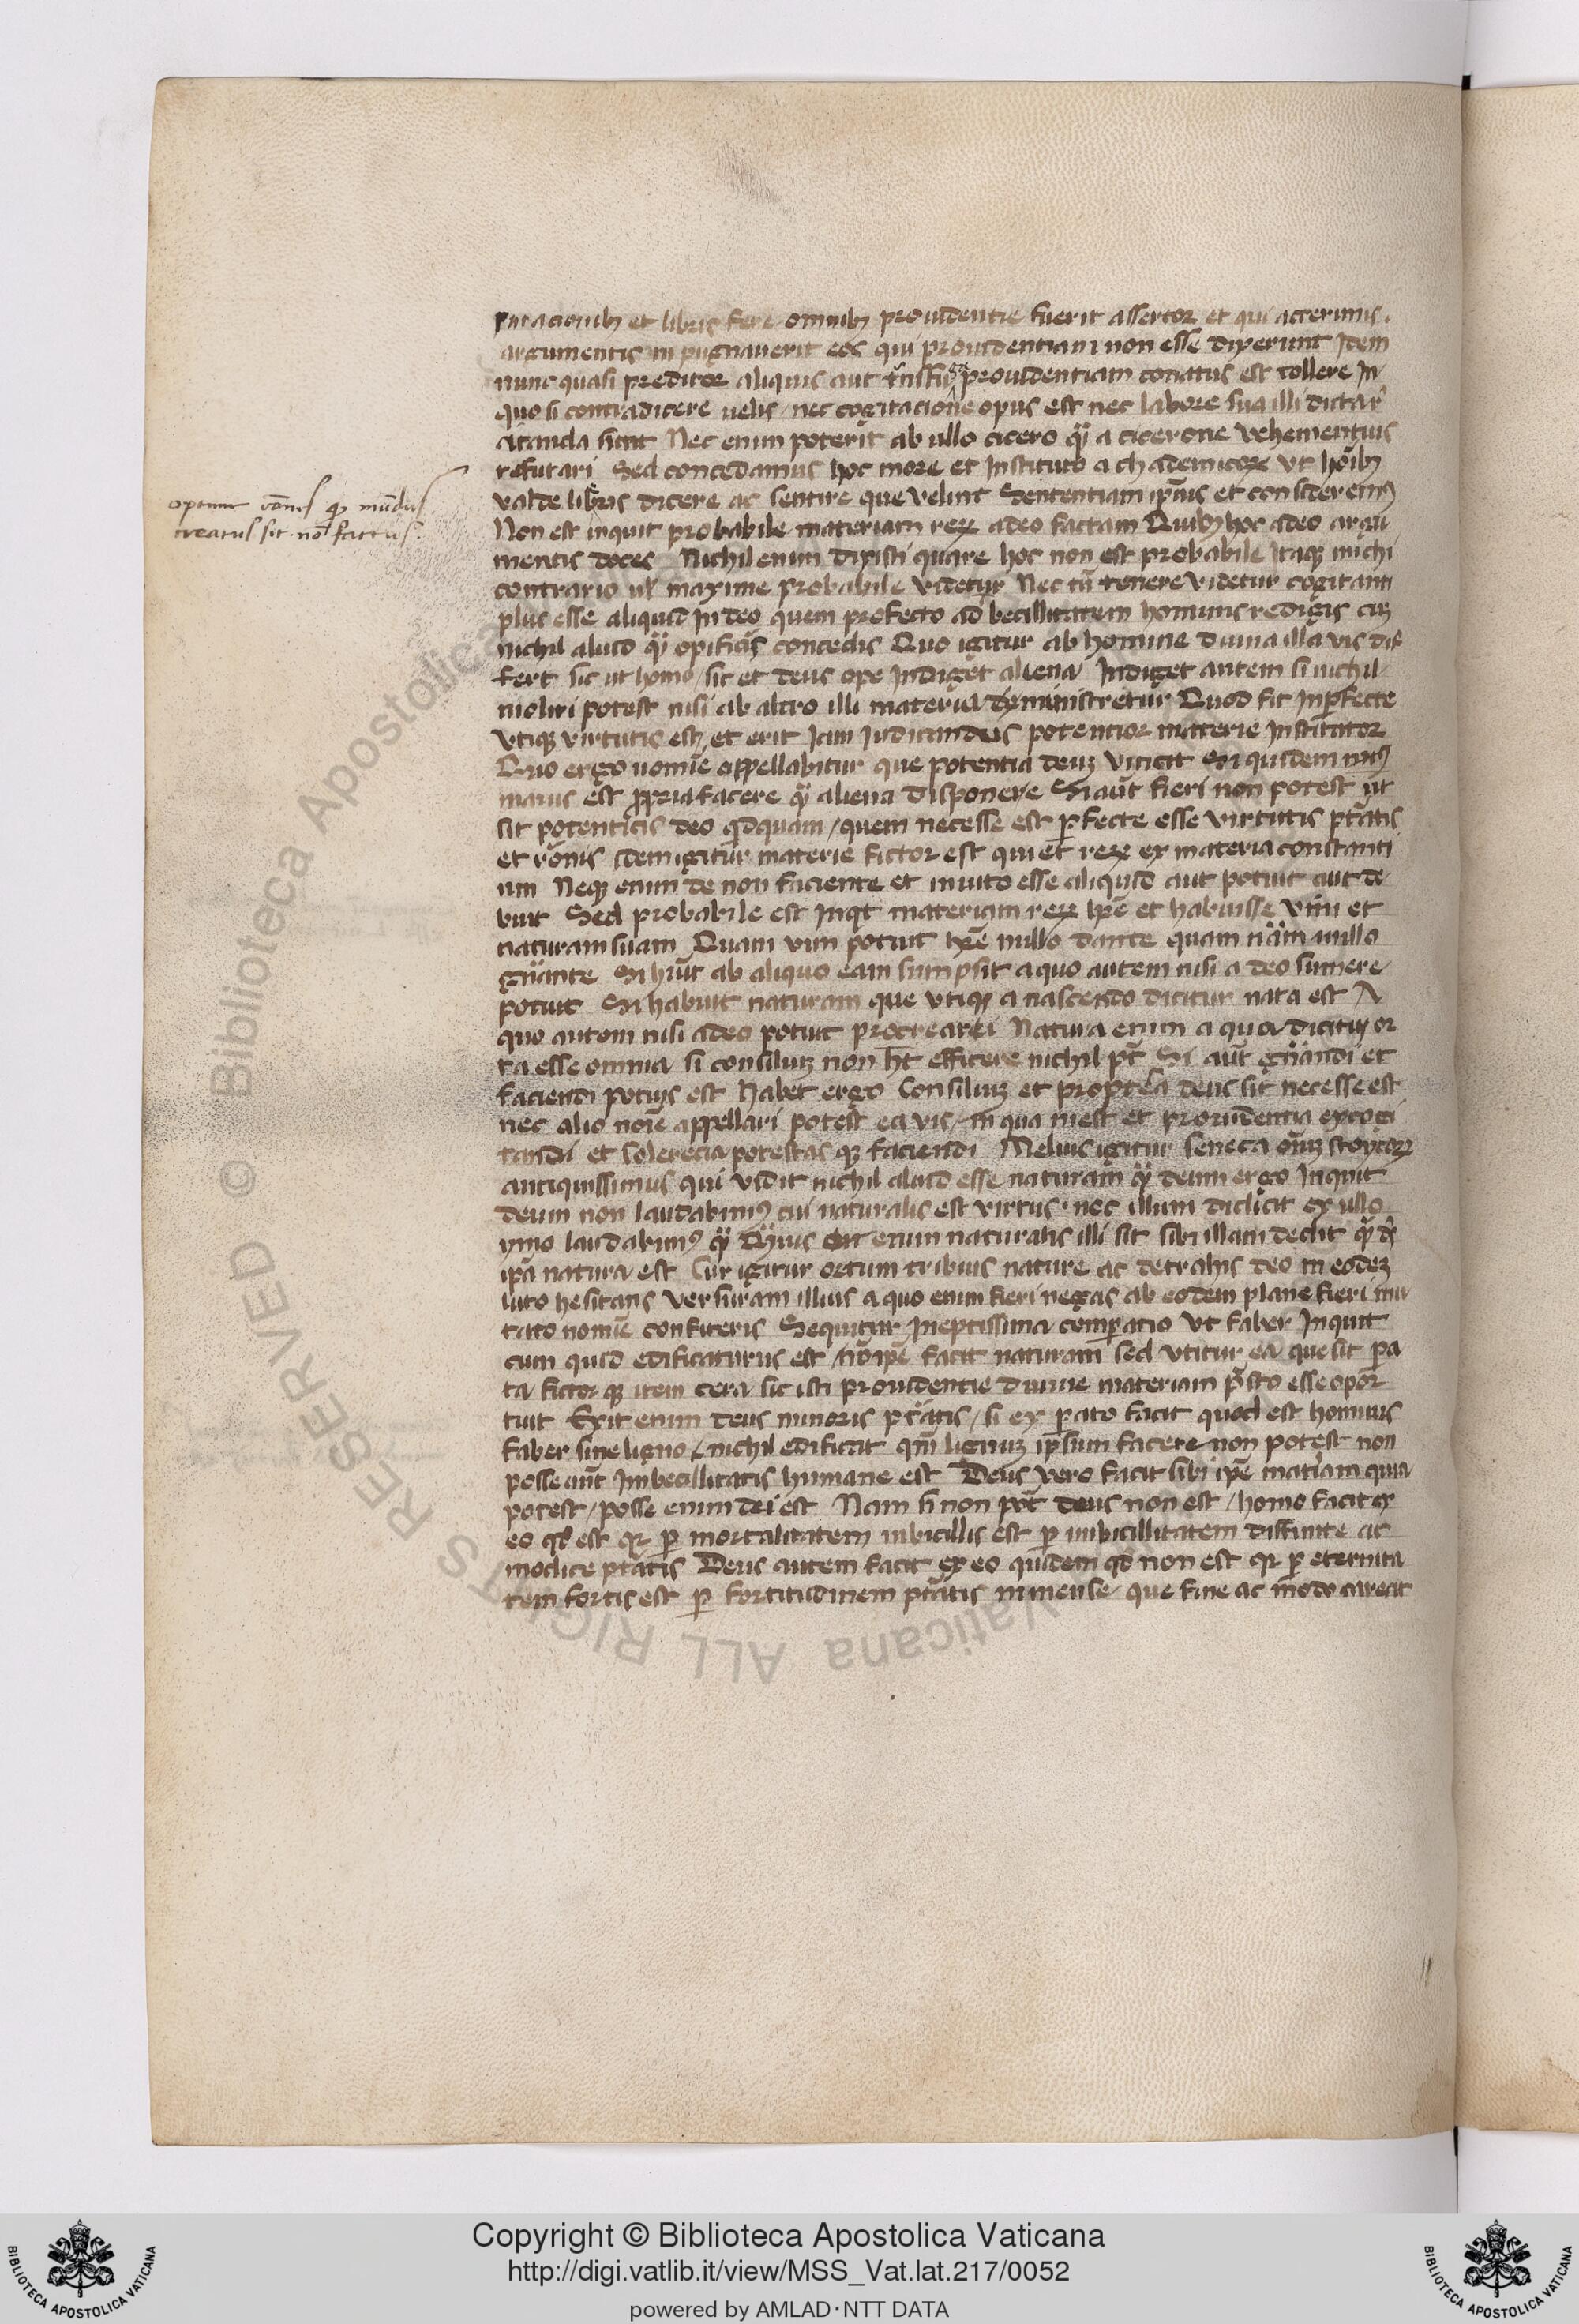 putacionibꝫ et libris fere omnibꝫ prouidentie fuerit assertor et qui acerrimis
argumentis inpugnauerit eos qui prouidentiam non esse dixerunt Idem
nunc quasi preditor aliquis aut prouidentiam conatus est tollere In
quo si contradicere uelis nec cogitacione opus est nec labore sua illi dicta
sunt Nec enim poterit ab ullo cicero qͣ a cicerone vehementius
refutari Sed concedamus hoc more et Instituto achademicoꝝ vt hoibꝫ
valde libris dicere ac sentire que velint Sententiam ipsius et consideremꝰ
optime quod mūdus
creatus sit nō factus
Non est inquit probabile materiam reꝝ adeo factam Quibꝫ hoc adeo argu
mentis doces Nichil enim dixisti quare hoc non est probabile Itaqꝫ michi
contrario ul maxime probabile videtur Nec tn̄ temere videtur cogitanti
plus esse aliquid In deo quem profecto ad becillitatem hominis redigis cuꝫ
nichil aliud qͣ opificiū concedis Quo igitur ab homine diuina illa vis dif
fert sic ut homo sic et deus ope Indiget aliena Indiget autem si nichil
moliri potest nisi ab altro illi materia dyministretur Quod fit Inꝑfecte
vtiqꝫ virtutis est et erit Iam Iudicandus potentior materie Institutor
Quo ergo nomīe appellabitur que potentia deuꝫ vincit Si quidem
maius est ꝓpria facere qͣ aliena disponere Si aūt fieri non potest ut
sit potentius deo qͥdquam quem necesse est ꝑfecte esse virtutis ptātis
et rōnis Idem igitur materie fictor est qui et reꝝ ex materia constanti
um Neqꝫ enim de non faciente et inuito esse aliquid aut potuit aut de
buit Sed probabile est Inqͭ materiam reꝝ hr̄e et habuisse vim et
naturam suam Quam vim potuit hr̄e nullo dante quam nāam nullo
gn̄ante Si hūit ab aliquo eam sumpsit a quo autem nisi a deo sumere
potuit Si habuit naturam que vtiqꝫ a nascendo dicitur nata est A
quo autem nisi adeo potuit procreari Natura enim a qua dicitis or
ta esse omnia si consiliuꝫ non ht̄ efficere nichil pt̄ Si aūt gn̄andi et
faciendi potens est Habet ergo Consiliuꝫ et propterea deus sit necesse est
nec alio noīe appellari potest ea vis in qua inest et prouidentia excogi
tandi et solerecia potestas qꝫ faciendi Melius igitur seneca oīuꝫ stoycoꝝ
antiquissimus qui vidit nichil aliud esse naturam qͣ deum ergo Inquit
deum non laudabimꝰ cui naturalis est virtus nec illam didicit ex ullo
ymo laudabimꝰ enim naturalis illi sit sibi illam dedit qͣ
ipa natura est Cur igitur ortum tribuis nature ac detrahis deo in eodeꝫ
luto hesitans versuram illius a quo enim fieri negas ab eodem plane fieri mu
tato nomīe confiteris Sequitur Ineptissima comꝑatio Vt faber Inquit
cum quid edificaturus est nō ipē facit naturam sed vtitur ea que sit ꝑa
ta fictor qꝫ item cera sic isti prouidentie diuine materiam pͣsto esse opor
tuit Erit enim deus minoris ptātis si ex ꝑato facit quod est hominis
faber sine ligno nichil edificat qm̄ lignuꝫ ipsum facere non potest non
posse aūt Imbecillitatis humane est Deus vero facit sibi ipē matīam quia
potest posse enim dei est Nam si non pot̄ deus non est homo facit ex
eo qd est qꝛ ꝑ mortalitatem inbicillis est ꝑ imbicillitatem diffinite ac
modice ptātis Deus autem facit ex eo quidem qd non est qꝛ ꝑ eternita
tem fortis est ꝑ fortitudinem ptātis inmense que fine ac modo carecit
Copyright © Biblioteca Apostolica Vaticana
http://digi.vatlib.it/view/MSS_Vat.lat.217/0052
powered by AMLAD·NTT DATA
BIBLIOTECA APOSTOLICA VATICANA
BIBLIOTECA APOSTOLICA VATICANA
© Biblioteca Apostolica Vaticana ALL RIGHTS RESERVED